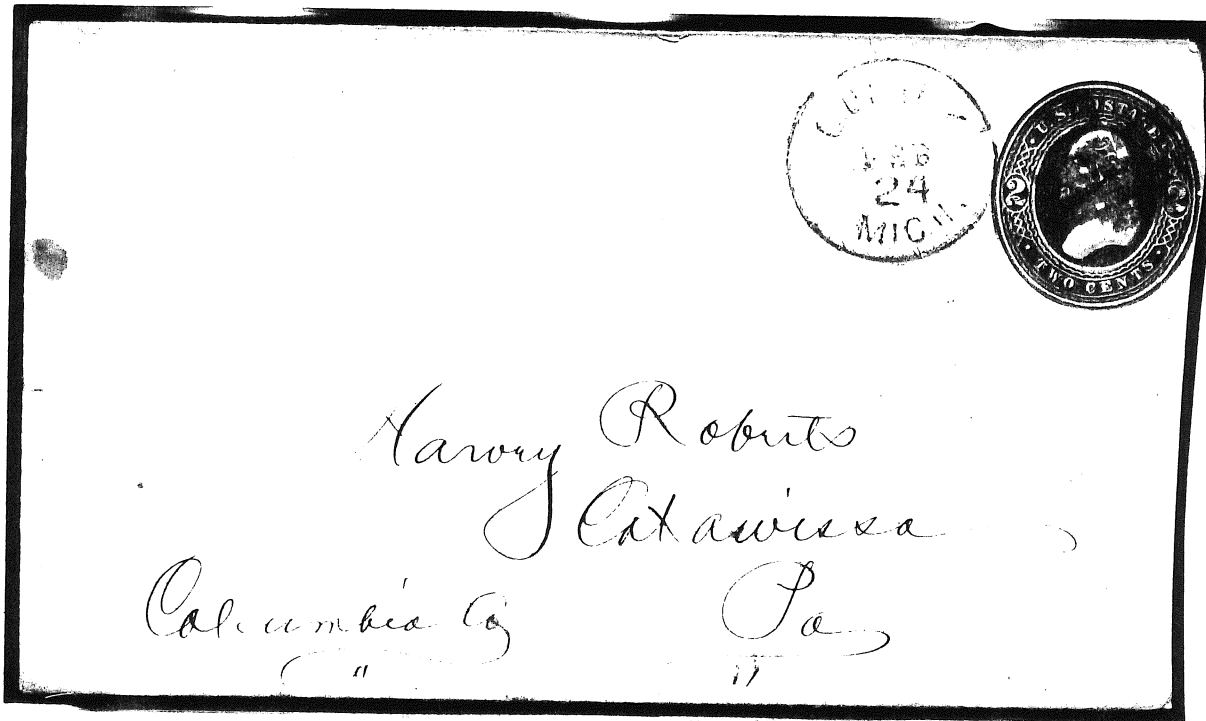 FEB
24
MICH.
U.S. POSTAGE
2 2
TWO CENTS
Harvey Roberts
Catawissa
Columbia Co Pa
" "